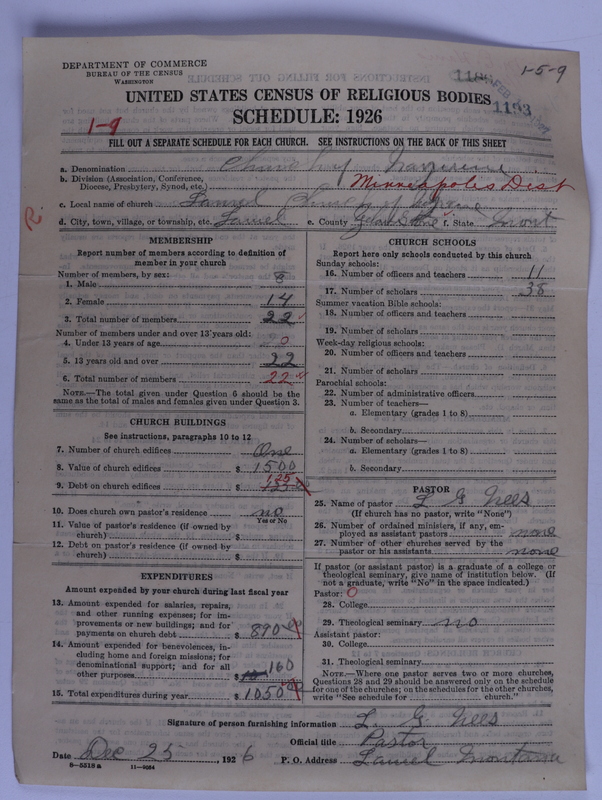 DEPARTMENT OF COMMERCE
BUREAU OF THE CENSUS
WASHINGTON
1-5-9
1193
UNITED STATES CENSUS OF RELIGIOUS BODIES
SCHEDULE: 1926
1-9
FILL OUT A SEPARATE SCHEDULE FOR EACH CHURCH. SEE INSTRUCTIONS ON THE BACK OF THIS SHEET
a. Denomination Church of Nazarene
b. Division (Association, Conference, Diocese, Presbytery, Synod, etc.) Minneapolis Dist
c. Local name of church Laurel Church of Nazarene
d. City, town, village, or township, etc. Laurel e. County Yellowstone f. State Mont
MEMBERSHIP
Report number of members according to definition of
member in your church
Number of members, by sex:
1. Male 8
2. Female 14
3. Total number of members 22
Number of members under and over 13 years old:
4. Under 13 years of age 0
5. 13 years old and over 22
6. Total number of members 22
NOTE.—The total given under Question 6 should be
same as the total of males and females given under Question 3.
CHURCH BUILDINGS
See instructions, paragraphs 10 to 12
7. Number of church edifices One
8. Value of church edifices $ 1500
9. Debt on church edifices $ 125
10. Does church own pastor's residence? no
Yes or No
11. Value of pastor's residence (if owned by
church) $
12. Debt on pastor's residence (if owned by
church) $
EXPENDITURES
Amount expended by your church during last fiscal year
13. Amount expended for salaries, repairs,
and other running expenses; for im-
provements or new buildings; and for
payments on church debt $ 890
14. Amount expended for benevolences, in-
cluding home and foreign missions; for
denominational support; and for all
other purposes $ 160
15. Total expenditures during year $ 1050
CHURCH SCHOOLS
Report here only schools conducted by this church
Sunday schools:
16. Number of officers and teachers 11
17. Number of scholars 38
Summer vacation Bible schools:
18. Number of officers and teachers
19. Number of scholars
Week-day religious schools:
20. Number of officers and teachers
21. Number of scholars
Parochial schools:
22. Number of administrative officers
23. Number of teachers—
a. Elementary (grades 1 to 8)
b. Secondary
24. Number of scholars—
a. Elementary (grades 1 to 8)
b. Secondary
PASTOR
25. Name of pastor L G Nees
(If church has no pastor, write "None")
26. Number of ordained ministers, if any, em-
ployed as assistant pastors none
27. Number of other churches served by the
pastor or his assistants none
If pastor (or assistant pastor) is a graduate of a college or
theological seminary, give name of institution below. (If
not a graduate, write "No" in the space indicated.)
Pastor: 0
28. College
29. Theological seminary no
Assistant pastor:
30. College
31. Theological seminary
NOTE.—Where one pastor serves two or more churches,
Questions 28 and 29 should be answered only on the schedule
for one of the churches; on the schedules for the other churches,
write "See schedule for church."
Signature of person furnishing information L. G. Nees
Official title Pastor
Date Dec 25, 1926 P. O. Address Laurel Montana
8-5519 a 11-9034